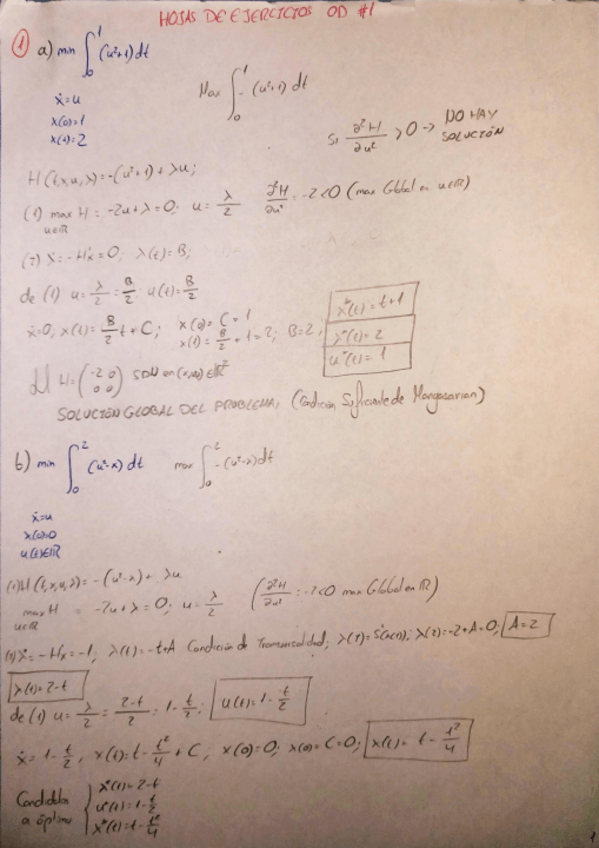 HOJAS DE EJERCICIOS OD #1
① a) min ∫₀¹ (u²+1) dt
Max ∫₀¹ -(u²+1) dt
ẋ=u
x(0)=1
x(1)=2
Si ∂²H/∂u² > 0 → NO HAY SOLUCIÓN
H(t,x,u,λ)=-(u²+1)+λu;
(1) max H = -2u+λ=0; u=λ/2 ∂²H/∂u² = -2<0 (max Global en u∈ℝ)
u∈ℝ
(2) λ̇=-Hx=0; λ(t)=B;
de (1) u=λ/2=B/2 u(t)=B/2
ẋ=0; x(t)=B/2 t+C; x(0)=C=1
x(1)=B/2+1=2; B=2;
x*(t)=t+1
λ*(t)=2
u*(t)=1
H=(-2 0 / 0 0) SDN en
SOLUCIÓN GLOBAL DEL PROBLEMA, (Condición Suficiente de Mangasarian)
b) min ∫₀² (u²-x) dt max ∫₀² -(u²-x) dt
ẋ=u
x(0)=0
u(t)∈ℝ
(1) H(t,x,u,λ)=-(u²-x)+λu
max H = -2u+λ=0; u=λ/2 (∂²H/∂u² = -2<0 max Global en ℝ)
u∈ℝ
λ̇=-Hx=-1; λ(t)=-t+A Condición de Transversalidad; λ(2)=-2+A=0; A=2
λ(t)=2-t
de (1) u=λ/2=(2-t)/2=1-t/2; u(t)=1-t/2
ẋ=1-t/2, x(t)=t-t²/4+C; x(0)=0; x(0)=C=0; x(t)=t-t²/4
Candidatos a óptimo
λ*(t)=2-t
u*(t)=1-t/2
x*(t)=t-t²/4
1